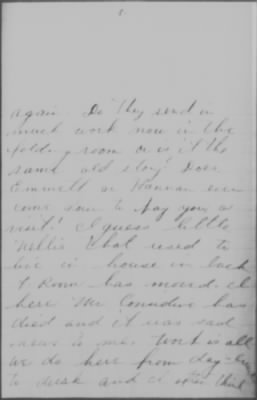 again. Do they send in
much work now in the
folding room or is it the
same old story? Does
Emmett or Hannan ever
come down to pay you a
visit? I guess little
Nellie that used to
live in house in back
of Ronn has moved. I
hear Mr Considine has
died and it was sad
news to me. Work is all
we do here from day-
to dusk and I often think